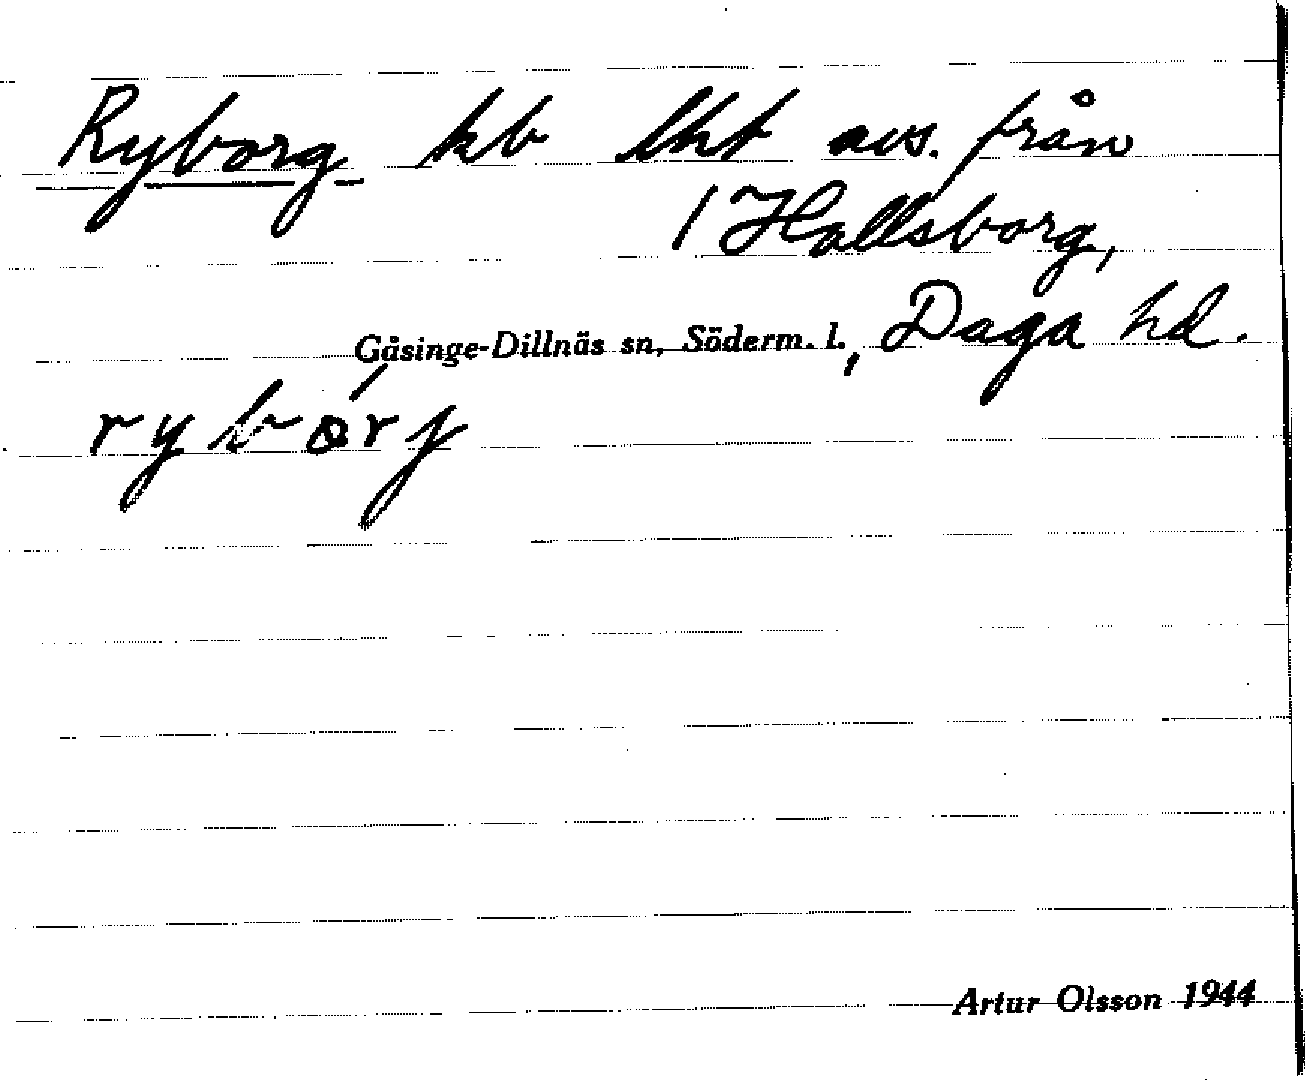 Ryborg kb lht avs. från
1 Hallsborg,
Gåsinge-Dillnäs sn, Söderm. l., Daga hd.
rybórj
Artur Olsson 1944